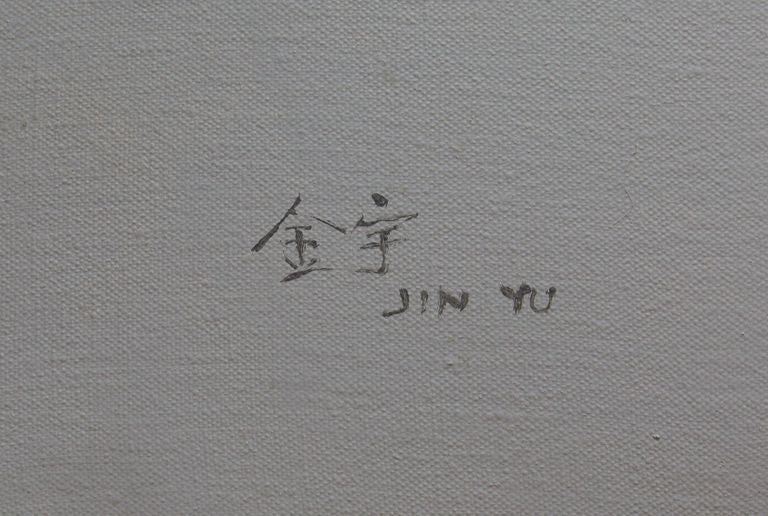 金宇
JIN YU